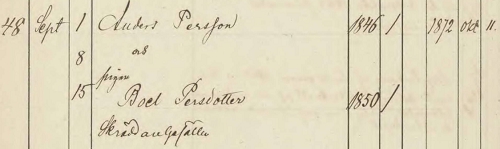 48 Sept 1 Anders Persson 1846 / 1872 okt 11.
8 och
pigan
15 Boel Persdotter 1850 /
Skräddaregesällen